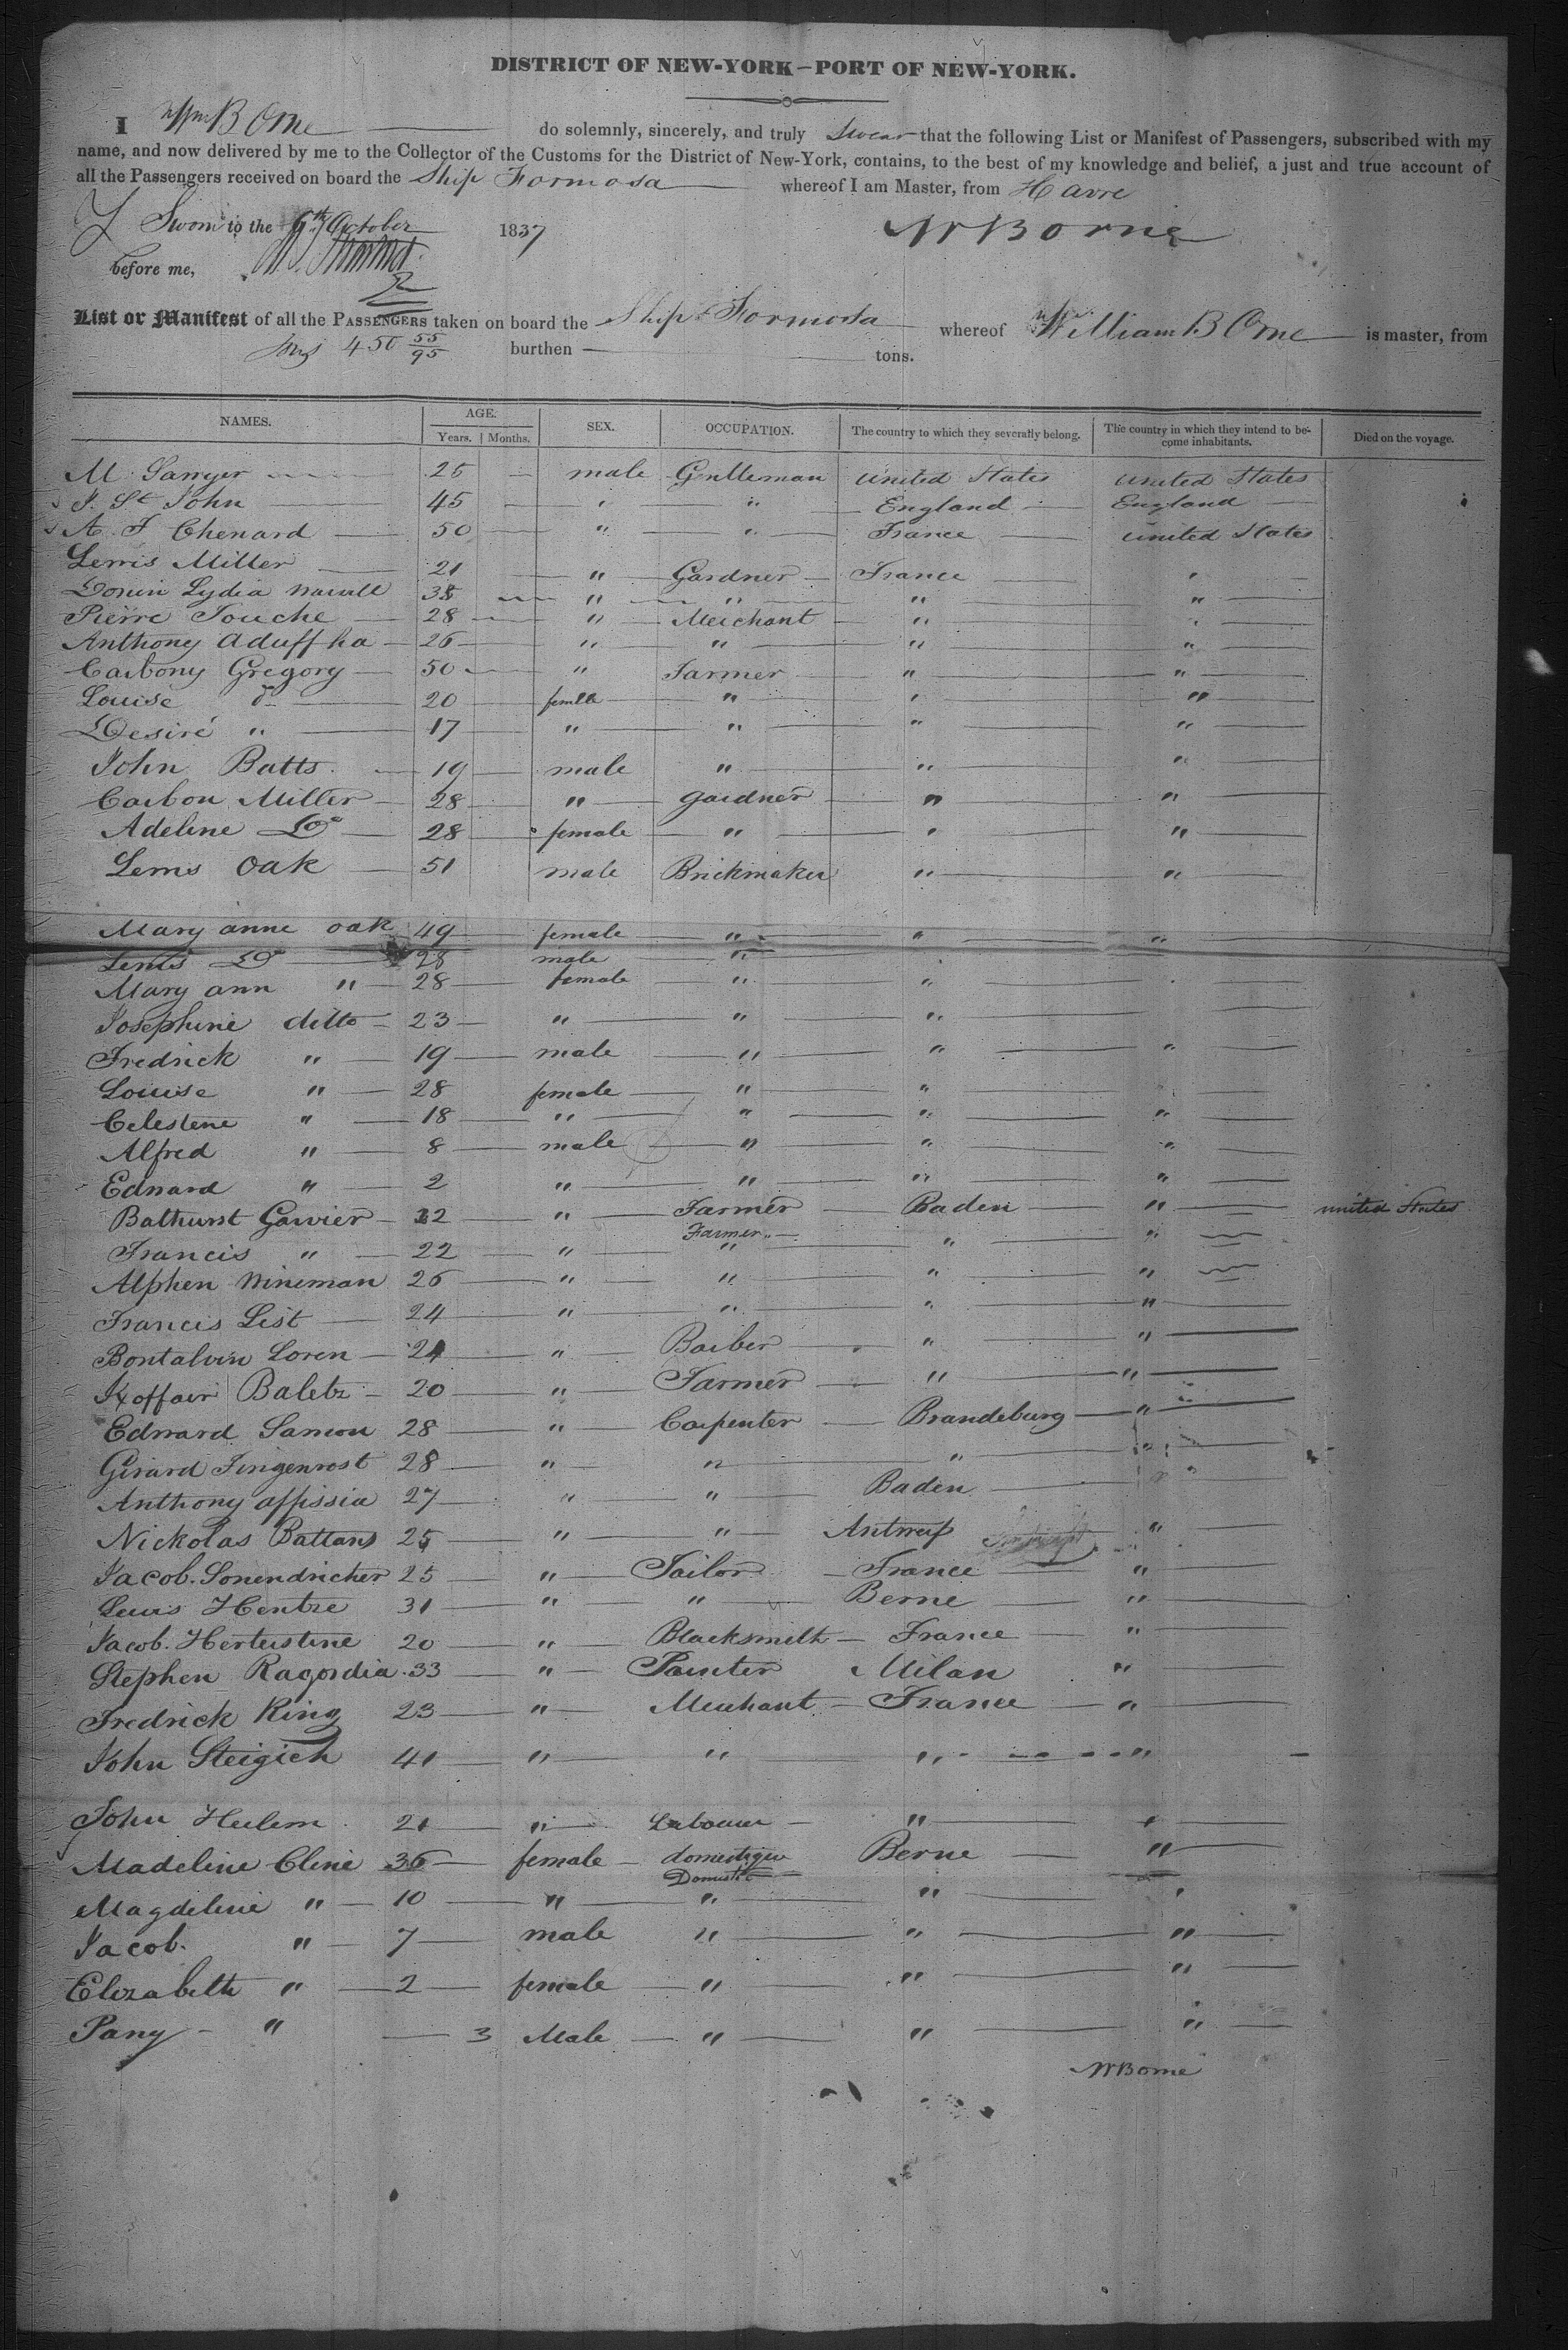 DISTRICT OF NEW-YORK—PORT OF NEW-YORK.
I Wm B Orne do solemnly, sincerely, and truly Swear that the following List or Manifest of Passengers, subscribed with my
name, and now delivered by me to the Collector of the Customs for the District of New-York, contains, to the best of my knowledge and belief, a just and true account of
all the Passengers received on board the Ship Formosa whereof I am Master, from Havre
Sworn to the 9th October 1837 W B Orne
before me,
List or Manifest of all the PASSENGERS taken on board the Ship Formosa whereof William B Orne is master, from
450 55/95 burthen tons.
NAMES. AGE. SEX. OCCUPATION. The country to which they severally belong. The country in which they intend to be- Died on the voyage.
Years. Months. come inhabitants.
M Sawyer 25 male Gentleman United States United States
J. St John 45 " " England England
A. F Chenard 50 " " France United States
Lewis Miller 21 " Gardner France "
Lydia 35 " " " "
Pierre Touche 28 " Merchant " "
Anthony Aduffha 26 " " " "
Carbony Gregory 50 " Farmer " "
Louise do 20 female " " "
Desiré " 17 " " " "
John Batts 19 male " " "
Carbon Miller 28 " Gardner " "
Adeline Do 28 female " " "
Lewis Oak 51 male Brickmaker " "
Mary anne oak 49 female " " "
Lewis Do 28 male "
Mary ann " 28 female " " "
Josephine ditto 23 " " "
Fredrick " 19 male " " "
Louise " 28 female " "
Celestene " 18 " " " "
Alfred " 8 male " " "
Edward " 2 " " " "
Bathurst Gavier 22 " Farmer Baden " United States
Farmer "
Francis " 22 " " " "
Alphen Wineman 26 " " " "
Francis List 24 " " " "
Bontalvin Loren 24 " Barber " "
Baletz 20 " Farmer " "
Edward Samon 28 " Carpenter Brandeburg "
Girard Fingenrost 28 " " " "
Anthony 27 " " Baden "
Nickolas Battans 25 " " Antwerp "
Jacob. Sonendricher 25 " Tailor France "
Lewis Hentze 31 " " Berne "
Jacob. Herteistine 20 " Blacksmith France "
Stephen Ragordia 33 " Painter Milan "
Fredrick King 23 " Merchant France "
John Steigich 41 " " " "
John Heilem 21 " Labourer " "
Madeline Cline 36 female domestique Berne "
Domestic
Magdeline " 10 " " " "
Jacob. " 7 male " " "
Elizabeth " 2 female " " "
Pany " 3 Male " " "
W B Orne